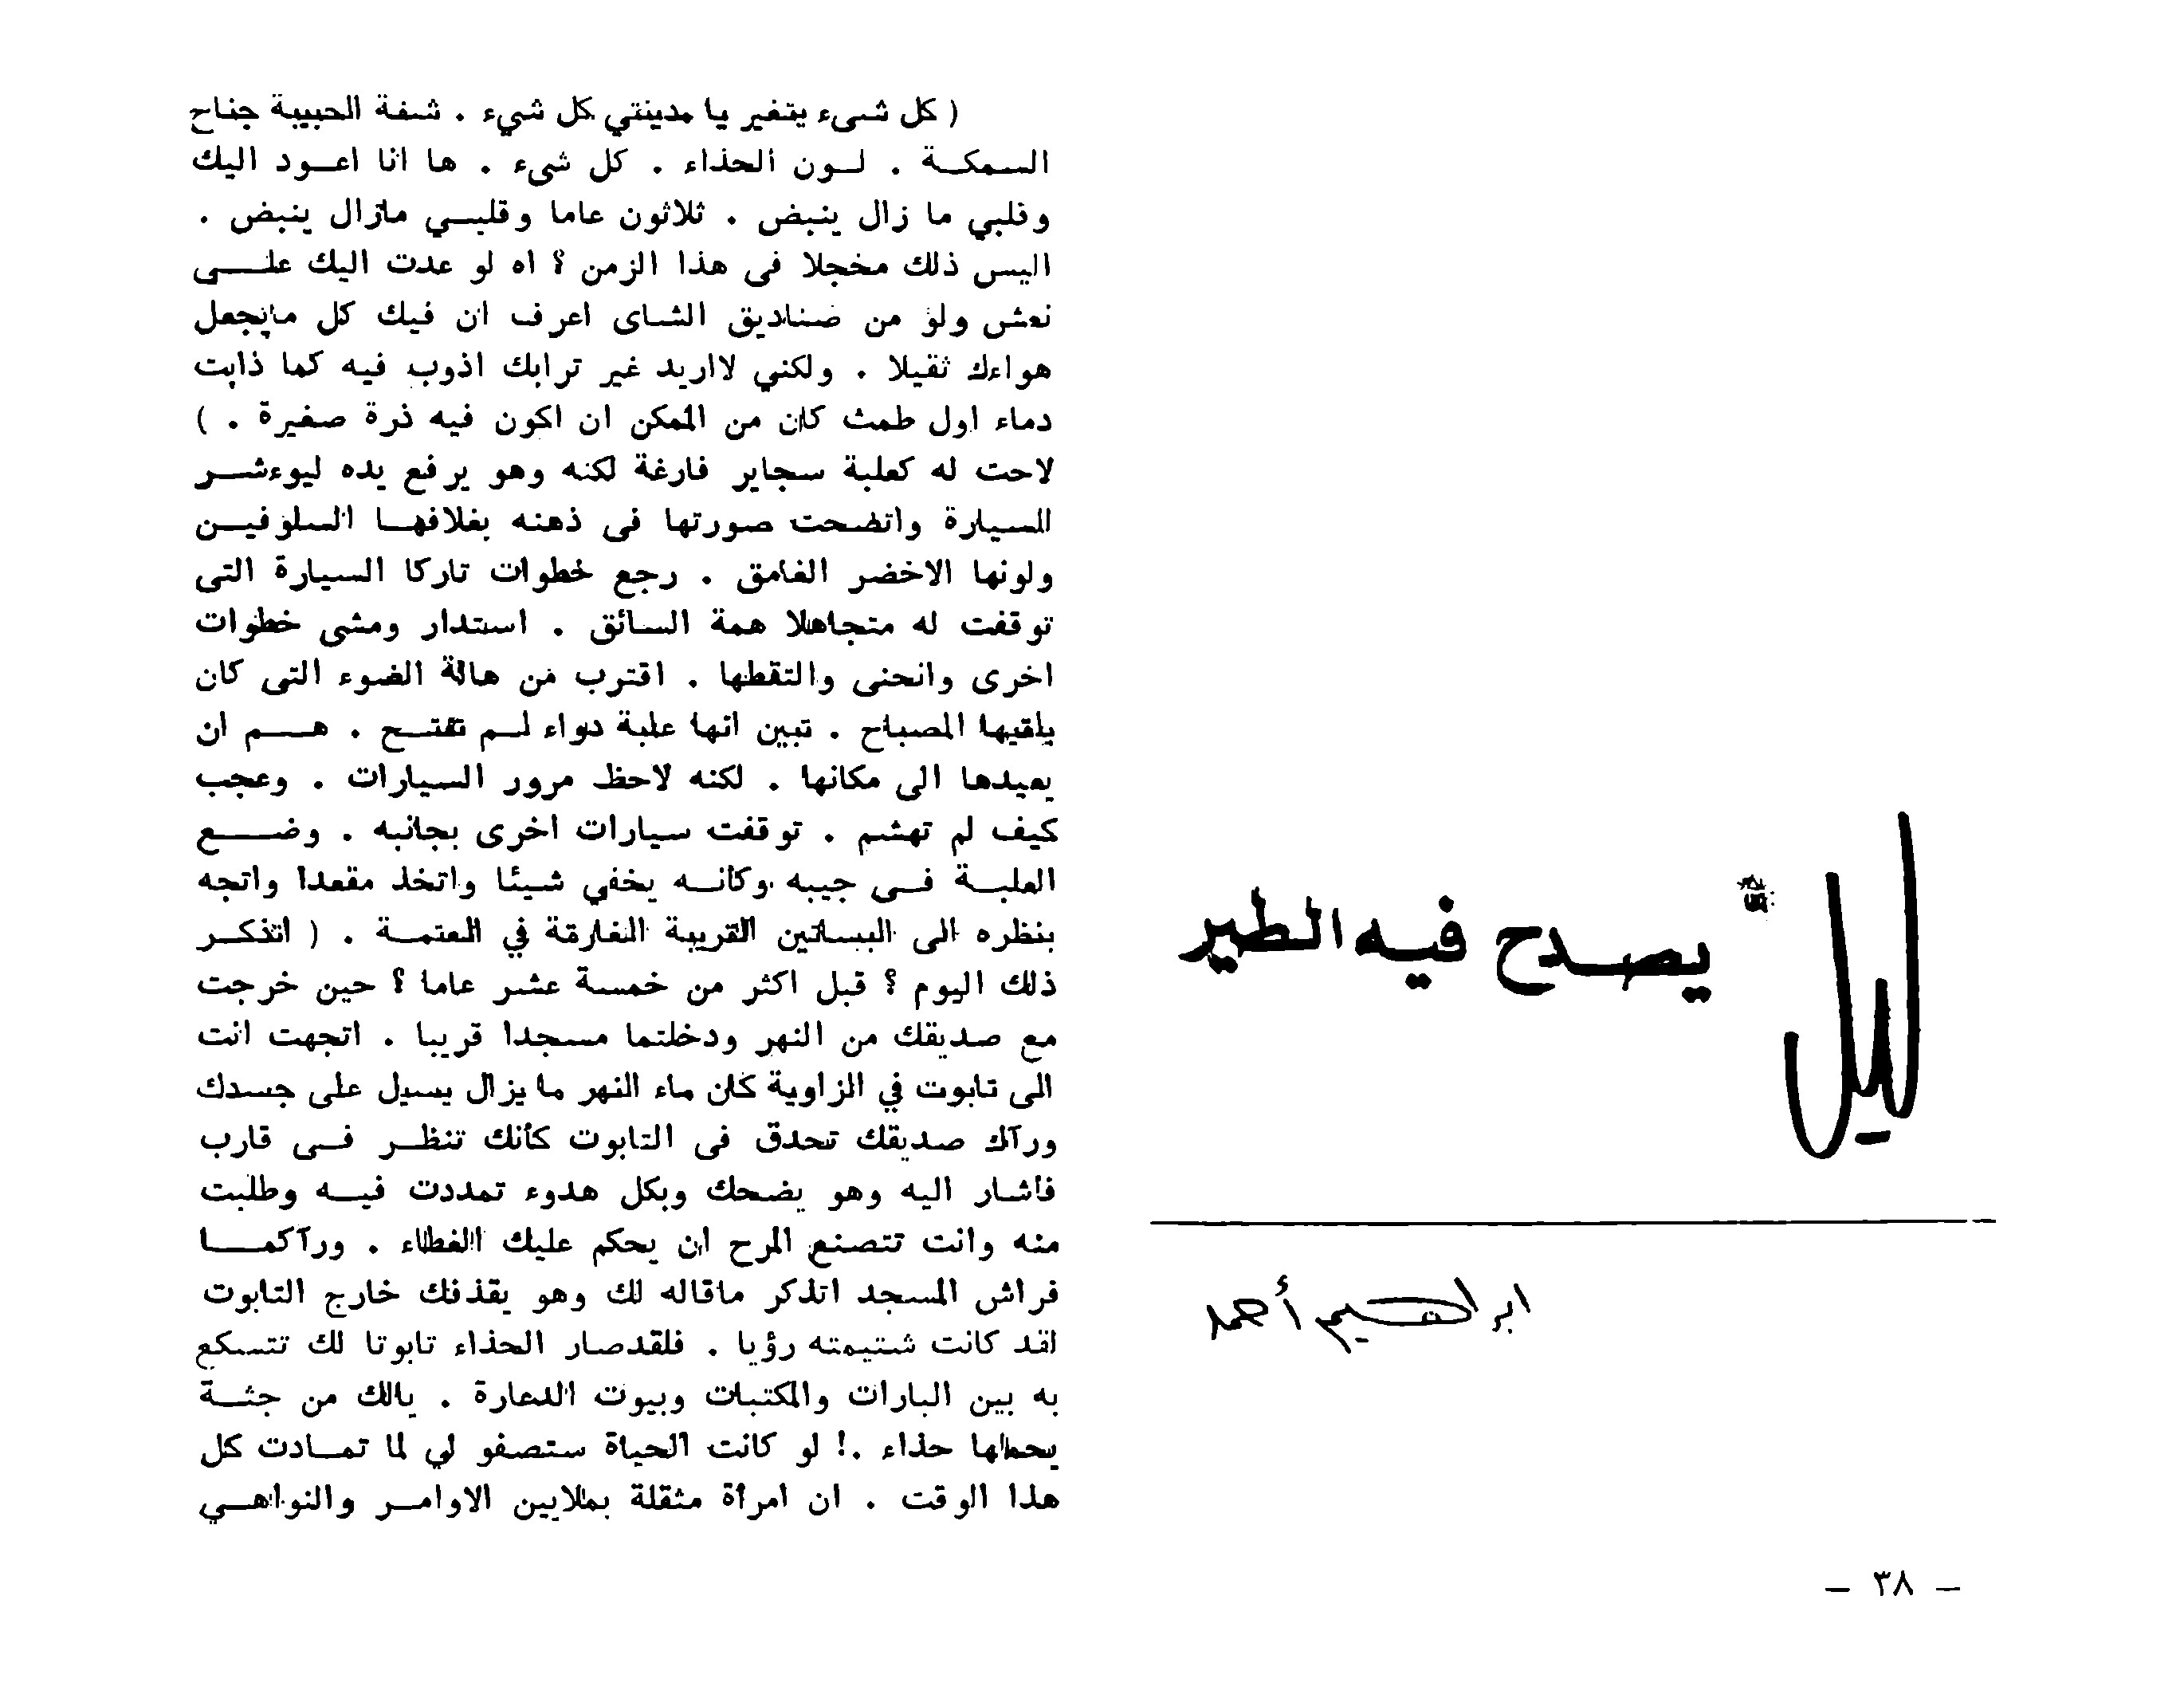 ليل
يصدح فيه الطير
ابراهيم أحمد
( كل شىء يتغير يا مدينتي كل شيء . شفة الحبيبة جناح
السمكة . لون الحذاء . كل شىء . ها انا اعود اليك
وقلبي ما زال ينبض . ثلاثون عاما وقلبي مازال ينبض .
اليس ذلك مخجلا فى هذا الزمن ؟ اه لو عدت اليك على
نعش ولو من صناديق الشاى اعرف ان فيك كل مايجعل
هواءك ثقيلا . ولكني لااريد غير ترابك اذوب فيه كما ذابت
دماء اول طمث كان من الممكن ان اكون فيه ذرة صغيرة . )
لاحت له كعلبة سجاير فارغة لكنه وهو يرفع يده ليوءشر
للسيارة واتضحت صورتها فى ذهنه بغلافها السلوفين
ولونها الاخضر الغامق . رجع خطوات تاركا السيارة التى
توقفت له متجاهلا همة السائق . استدار ومشى خطوات
اخرى وانحنى والتقطها . اقترب من هالة الضوء التى كان
يلقيها المصباح . تبين انها علبة دواء لم تفتح . هم ان
يعيدها الى مكانها . لكنه لاحظ مرور السيارات . وعجب
كيف لم تهشم . توقفت سيارات اخرى بجانبه . وضع
العلبة فى جيبه وكانه يخفي شيئا واتخذ مقعدا واتجه
بنظره الى البساتين القريبة الغارقة في العتمة . ( اتذكر
ذلك اليوم ؟ قبل اكثر من خمسة عشر عاما ؟ حين خرجت
مع صديقك من النهر ودخلتما مسجدا قريبا . اتجهت انت
الى تابوت في الزاوية كان ماء النهر ما يزال يسيل على جسدك
ورآك صديقك تحدق فى التابوت كأنك تنظر فى قارب
فأشار اليه وهو يضحك وبكل هدوء تمددت فيه وطلبت
منه وانت تتصنع المرح ان يحكم عليك الغطاء . ورآكما
فراش المسجد اتذكر ماقاله لك وهو يقذفك خارج التابوت
لقد كانت شتيمته رؤيا . فلقدصار الحذاء تابوتا لك تتسكع
به بين البارات والمكتبات وبيوت الدعارة . يالك من جثة
يحملها حذاء .! لو كانت الحياة ستصفو لي لما تمادت كل
هذا الوقت . ان امرأة مثقلة بملايين الاوامر والنواهي
– ٣٨ –